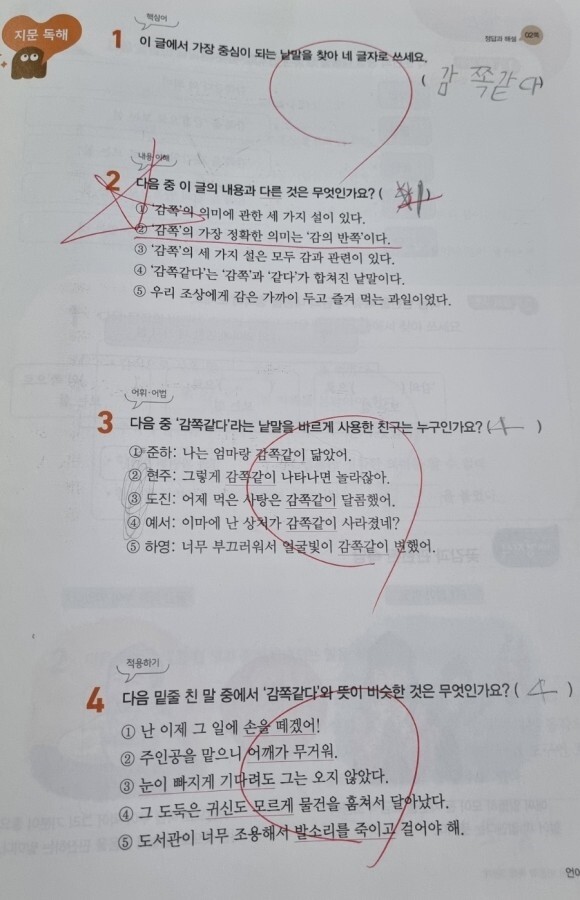 지문 독해
핵심어
정답과 해설 02쪽
1 이 글에서 가장 중심이 되는 낱말을 찾아 네 글자로 쓰세요.
( 감쪽같다 )
내용 이해
2 다음 중 이 글의 내용과 다른 것은 무엇인가요? ( 1
① ‘감쪽’의 의미에 관한 세 가지 설이 있다.
② ‘감쪽’의 가장 정확한 의미는 ‘감의 반쪽’이다.
③ ‘감쪽’의 세 가지 설은 모두 감과 관련이 있다.
④ ‘감쪽같다’는 ‘감쪽’과 ‘같다’가 합쳐진 낱말이다.
⑤ 우리 조상에게 감은 가까이 두고 즐겨 먹는 과일이었다.
어휘·어법
3 다음 중 ‘감쪽같다’라는 낱말을 바르게 사용한 친구는 누구인가요? ( 4 )
① 준하: 나는 엄마랑 감쪽같이 닮았어.
② 현주: 그렇게 감쪽같이 나타나면 놀라잖아.
③ 도진: 어제 먹은 사탕은 감쪽같이 달콤했어.
④ 예서: 이마에 난 상처가 감쪽같이 사라졌네?
⑤ 하영: 너무 부끄러워서 얼굴빛이 감쪽같이 변했어.
적용하기
4 다음 밑줄 친 말 중에서 ‘감쪽같다’와 뜻이 비슷한 것은 무엇인가요? ( 4 )
① 난 이제 그 일에 손을 떼겠어!
② 주인공을 맡으니 어깨가 무거워.
③ 눈이 빠지게 기다려도 그는 오지 않았다.
④ 그 도둑은 귀신도 모르게 물건을 훔쳐서 달아났다.
⑤ 도서관이 너무 조용해서 발소리를 죽이고 걸어야 해.